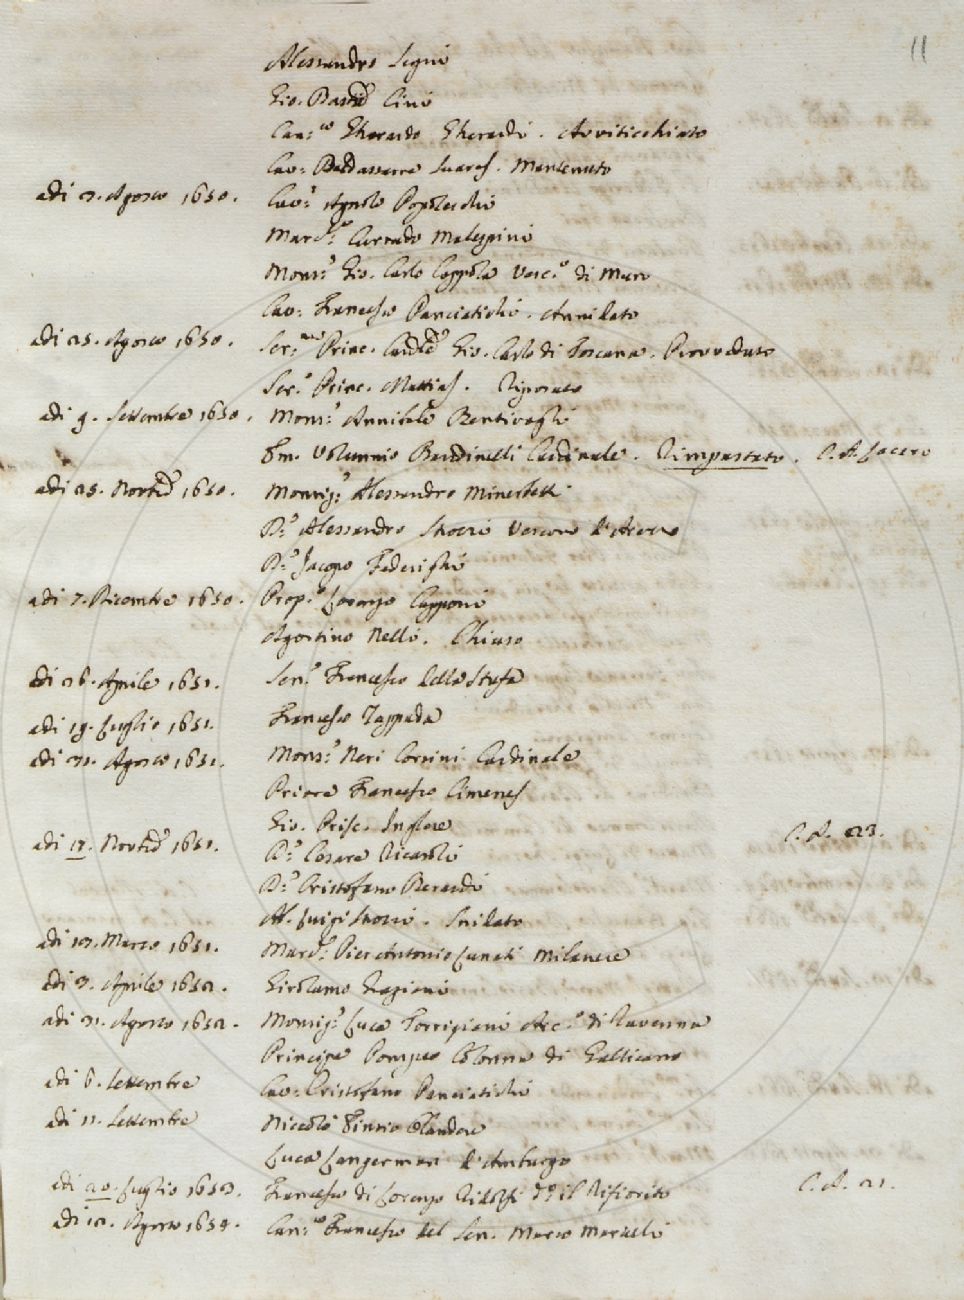 11
Alessandro Segni
Gio. Batt.ᵃ Cini
Can.ᶜᵒ Gherardo Gherardi. Avviticchiato
Cav: Baldassarre Suares. Mantenuto
adi 3. Agosto 1650. Cav.ʳ Agnolo Popoleschi
March.ᵉ Currado Malespini
Mons.ʳ Gio. Carlo Coppola Vesc.ᵒ di Muro
Cav: Francesco Panciatichi. Annidato
adi 25. Agosto 1650. Ser.ᵐᵒ Princ. Card.ˡᵉ Gio. Carlo di Toscana. Provveduto
Ser.ᵒ Princ. Mattias. Riposato
adi 9. Settembre 1650. Mons.ʳ Annibale Bentivogli
Em. Volunnio Bandinelli Cardinale. Rimpastato. C. A. Lacero
adi 25. Novbᵉ 1650. Monsig.ʳ Alessandro Minerbetti
D.ʳ Alessandro Strozzi Vescovo d'Arezzo
D.ʳ Jacopo Federighi
adi 7. Dicembre 1650. Prop.ᵒ Lorenzo Capponi
Agostino Nelli. Chiuso
adi 26. Aprile 1651. Sen.ʳ Francesco della Stufa
adi 19. Luglio 1651. Francesco Rappada
adi 31. Agosto 1651. Mons.ʳ Neri Corsini Cardinale
Priore Francesco Ximenes
Gio. Prise. Inglese
C. A. 23.
adi 17. Novbᵉ 1651. D.ʳ Cesare Ricasoli
D.ʳ Cristofano Berardi
Ab. Luigi Strozzi. Snidato
adi 13. Marzo 1651. March.ᵉ Pier Antonio Lunati Milanese
adi 3. Aprile 1652. Girolamo Ragioni
adi 31. Agosto 1652. Monsig.ʳ Luca Torrigiani Arc.ᵒ di Ravenna
Principe Pompeo Colonna di Gallicano
adi 6. Settembre Cav: Cristofano Panciatichi
adi 11. Settembre Niccolò Einsio Olandese
Luca Langerman d'Amburgo
adi 20. Luglio 1653. Francesco di Lorenzo Ridolfi dᵒ il Rifiorito C. A. 21.
adi 12. Agosto 1654. Can.ᶜᵒ Francesco del Sen. Marco Martelli